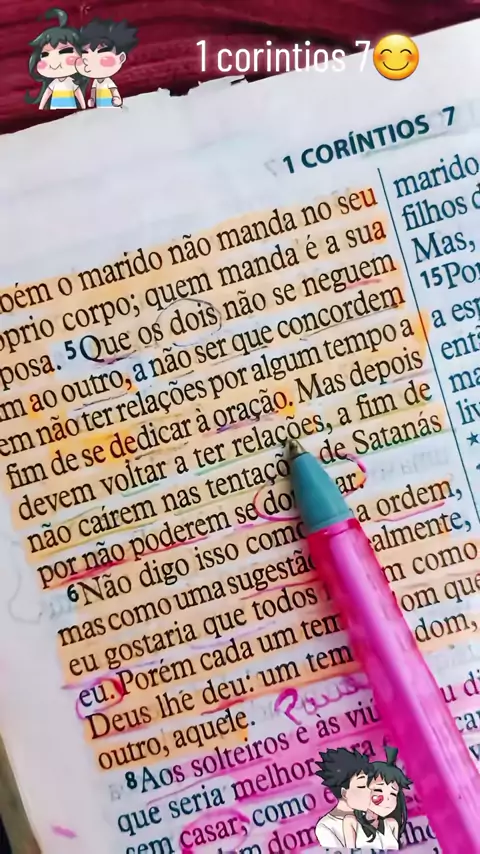 1 corintios 7😊
1 CORÍNTIOS 7
bém o marido não manda no seu
óprio corpo; quem manda é a sua
posa. 5Que os dois não se neguem
m ao outro, a não ser que concordem
em não ter relações por algum tempo a
fim de se dedicar à oração. Mas depois
devem voltar a ter relações, a fim de
não caírem nas tentaçõ de Satanás
por não poderem se do ar.
6Não digo isso como a ordem,
mas como uma sugestã almente,
eu gostaria que todos m como
eu. Porém cada um tem om que
Deus lhe deu: um tem dom,
outro, aquele.
8Aos solteiros e às viú u di
que seria melhor
sem casar, como
dom
marido
filhos d
Mas,
15Por
a esp
entã
ma
liv